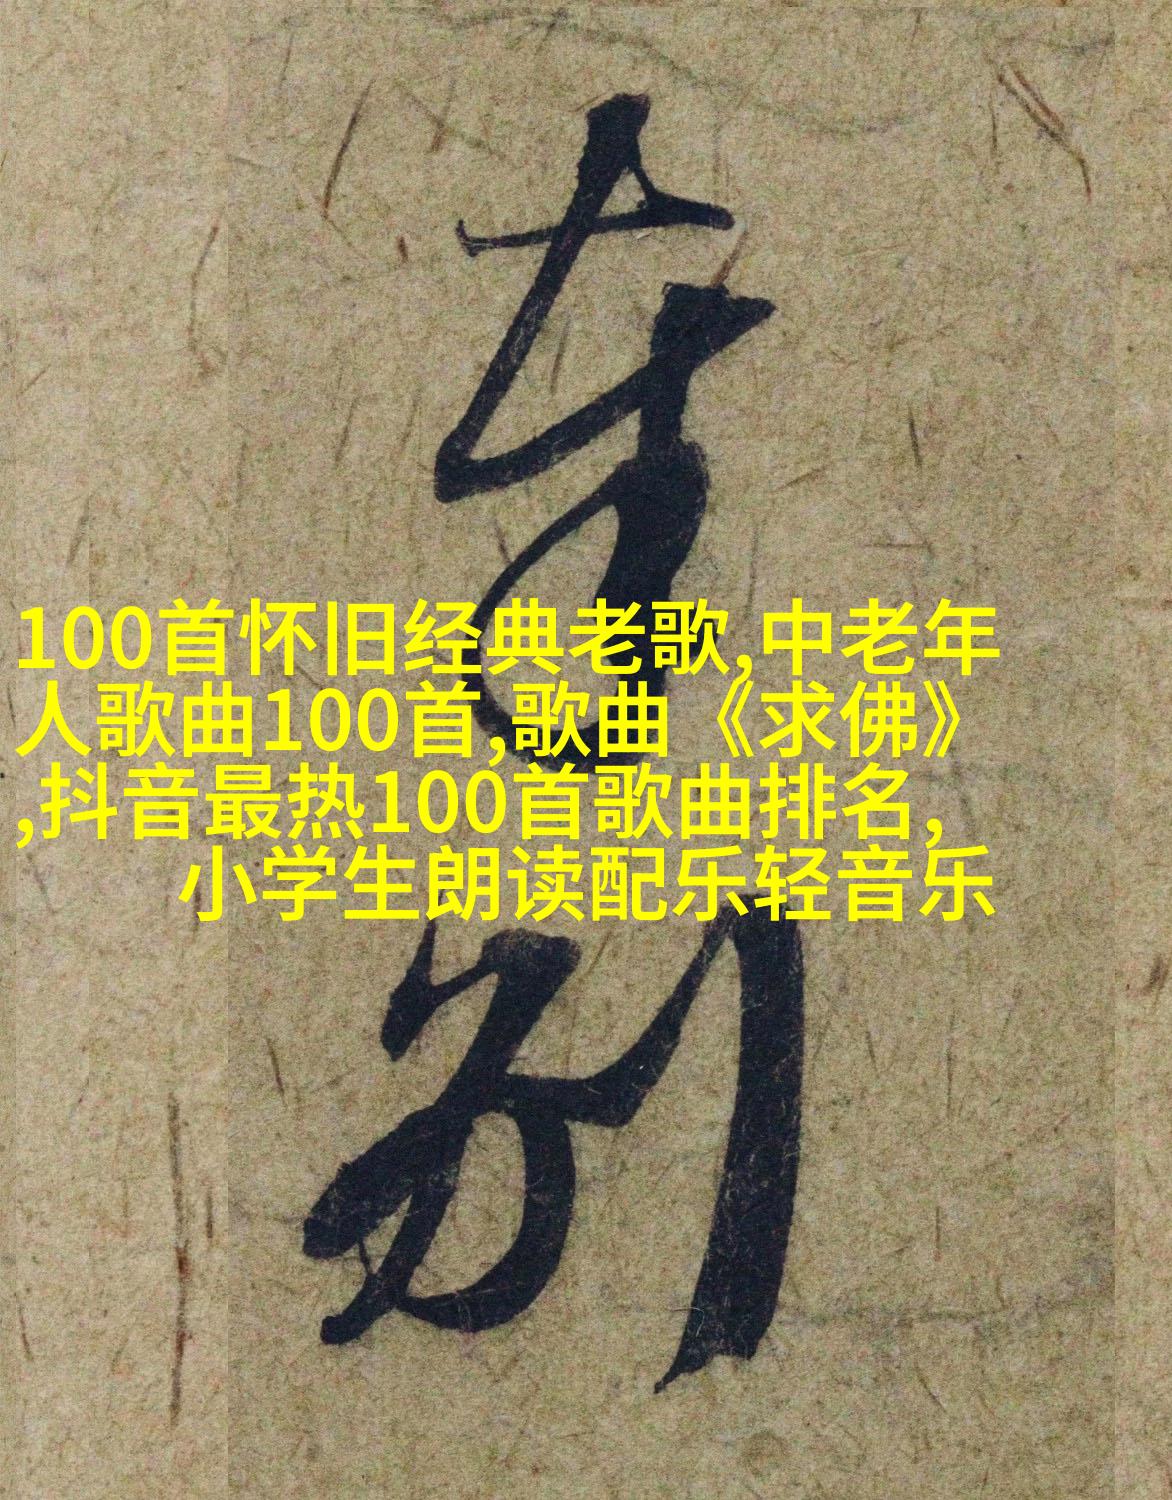 100首怀旧经典老歌,中老年
人歌曲100首,歌曲《求佛》
,抖音最热100首歌曲排名,
小学生朗读配乐轻音乐